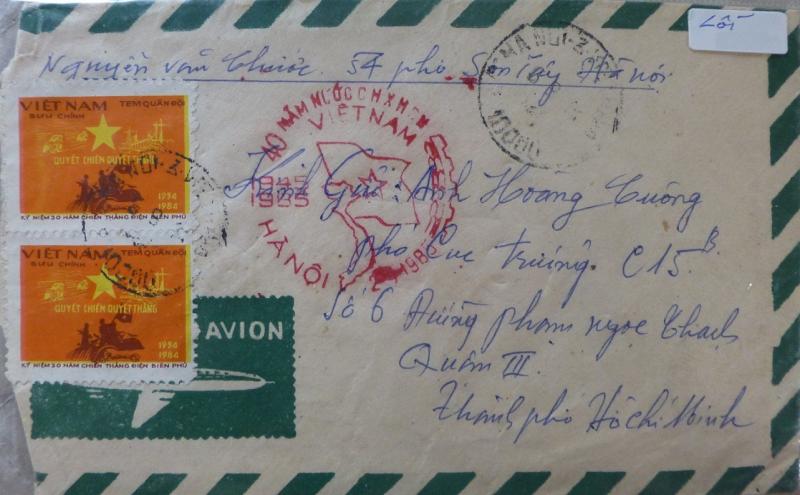 Lỗi
Nguyễn văn Chước. 54 phố Sơn Tây Hà nội
HA NOI-Z.V
10000
VIỆT NAM TEM QUÂN ĐỘI
BƯU CHÍNH
QUYẾT CHIẾN QUYẾT THẮNG
1954
1984
KỶ NIỆM 30 NĂM CHIẾN THẮNG ĐIỆN BIÊN PHỦ
40 NĂM NƯỚC CHXHCN
VIỆTNAM
1945
1985
HÀNỘI
Kính Gửi: Anh Hoàng Cường
phó Cục trưởng. C15B
Số 6 Đường phạm ngọc Thạch
Quận III
Thành phố Hồ chí Minh
VIỆT NAM TEM QUÂN ĐỘI
BƯU CHÍNH
QUYẾT CHIẾN QUYẾT THẮNG
1954
1984
KỶ NIỆM 30 NĂM CHIẾN THẮNG ĐIỆN BIÊN PHỦ
AVION